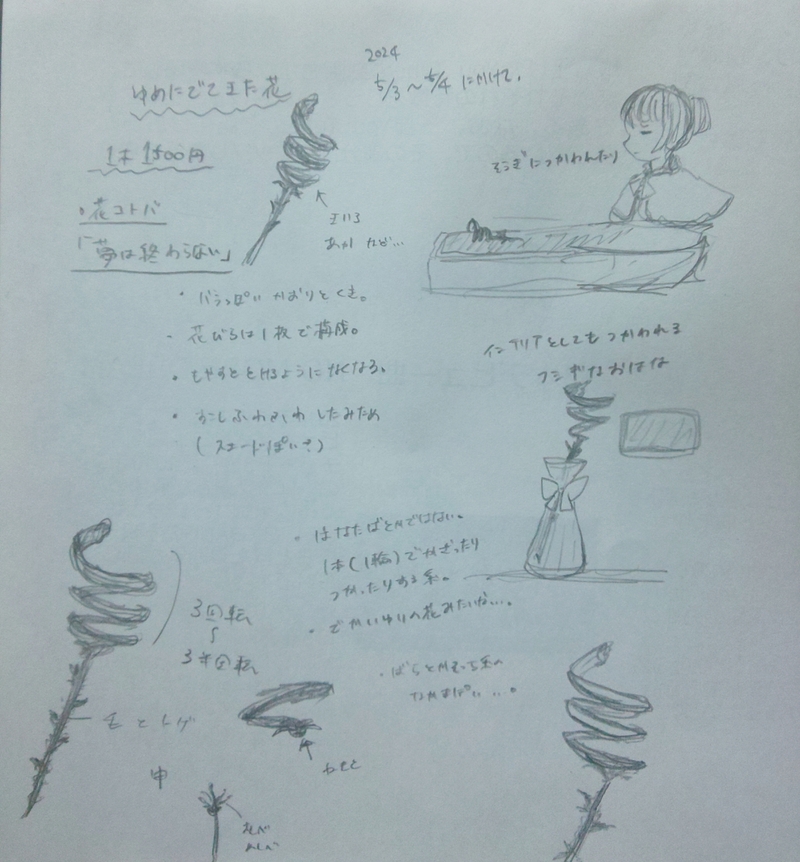 2024
5/3～5/4 にかけて。
ゆめにでてきた花
1本 1500円
・花コトバ
「夢は終わらない」
そうぎにつかわれたり
きいろ
あか など…
・バラっぽい かおりとくき。
・花びらは1枚で構成。
・もやすととけるようになくなる。
・すこしふわふわ したみため
(スエードっぽい?)
インテリアとしてもつかわれる
フシギなおはな
・はなたばとかではない。
1本(1輪)でかざったり
つかったりする系。
・でかいゆりの花みたいな…。
3回転
〜
3半回転
・ばらとか
毛とトゲ
中
おしべ
めしべ